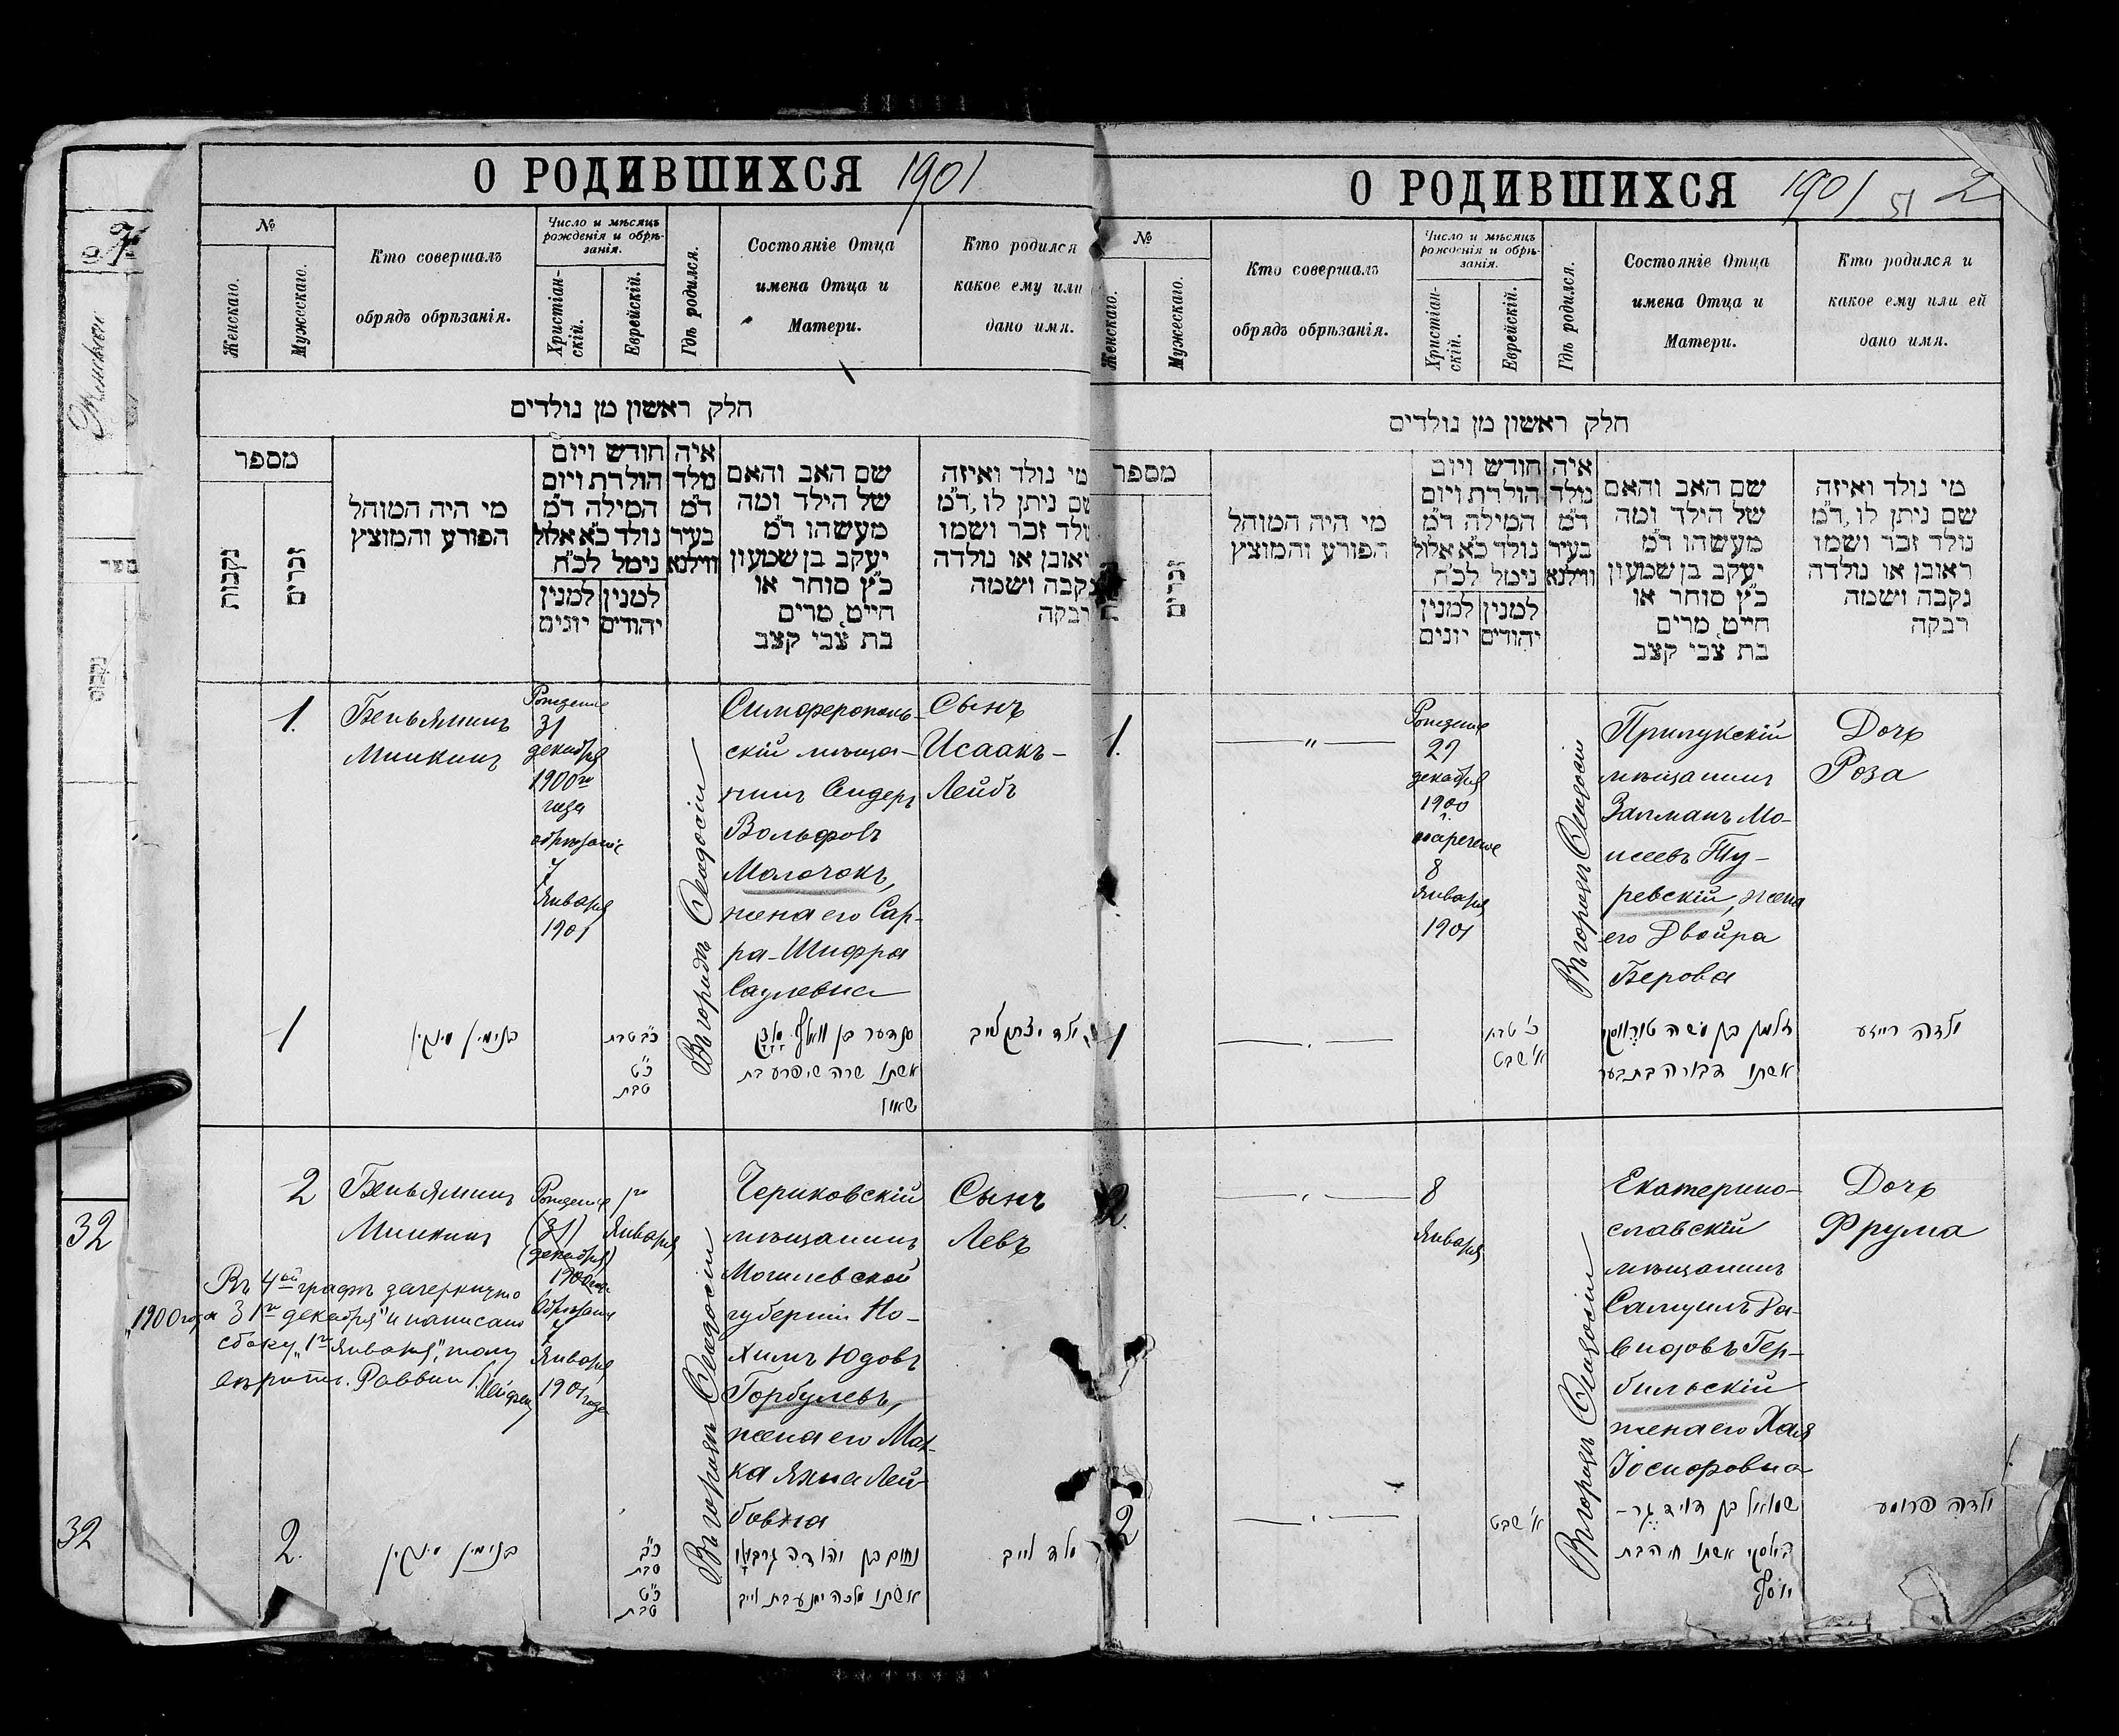 О РОДИВШИХСЯ 1901
№
Женскаго.
Мужескаго.
Кто совершалъ
обрядъ обрѣзанія.
Число и мѣсяцъ
рожденія и обрѣ-
занія.
Христіан-
скій.
Еврейскій.
Гдѣ родился.
Состояніе Отца
имена Отца и
Матери.
Кто родился
какое ему или
дано имя.
חלק ראשון מן נולדים
מספר
נקבות
זכרים
מי היה המוהל
הפורע והמוציץ
חודש ויום
הולדת ויום
המילה ד״מ
נולד כ״א אלול
נימל לכ״ח
למנין
יהודים
למנין
יונים
איה
נולד
ד״מ
בעיר
ווילנא
שם האב והאם
של הילד ומה
מעשהו ד״מ
יעקב בן שמעון
כ״ץ סוחר או
חייט, מרים
בת צבי קצב
מי נולד ואיזה
שם ניתן לו, ד״מ
נולד זכר ושמו
ראובן או נולדה
נקבה ושמה
רבקה
1.
Беньяминъ
Минкинъ
Рожденіе
31
декабря
1900го
года
обрѣзаніе
7
Января
1901
Въ городѣ Ѳеодосіи
Симферополь-
скій мѣща-
нинъ Сендеръ
Вольфовъ
Молочокъ,
жена его Сар-
ра-Шифра
Саулевна
Сынъ
Исаакъ-
Лейбъ
1
בנימין מינקין
כ״ב טבת
כ״ט
טבת
סנדער בן וואלף
אשתו שרה שיפרע בת
שאול
ילד יצחק לייב
2
Беньяминъ
Минкинъ
Рожденіе
(31)
(декабря)
1900 года
Обрѣзаніе
7
Января
1901 года
1го
Января
Въ городѣ Ѳеодосіи
Чериковскій
мѣщанинъ
Могилевской
губерніи Но-
химъ Юдовъ
Горбулевъ,
жена его Мал-
ка Яхна Лей-
бовна
Сынъ
Левъ
Въ 4ой графѣ зачеркнуто
„1900 года 31го декабря" и написано
сбоку „1го Января", тому
вѣрить. Раввинъ
2.
בנימין מינקין
כ״ב
טבת
כ״ט
טבת
נחום בן יהודה
אשתו מלכה יחנע בת לייב
ילד לייב
32
32
О РОДИВШИХСЯ 1901 51 2
№
Женскаго.
Мужескаго.
Кто совершалъ
обрядъ обрѣзанія.
Число и мѣсяцъ
рожденія и обрѣ-
занія.
Христіан-
скій.
Еврейскій.
Гдѣ родился.
Состояніе Отца
имена Отца и
Матери.
Кто родился и
какое ему или ей
дано имя.
חלק ראשון מן נולדים
מספר
זכרים
מי היה המוהל
הפורע והמוציץ
חודש ויום
הולדת ויום
המילה ד״מ
נולד כ״א אלול
נימל לכ״ח
למנין
יהודים
למנין
יונים
איה
נולד
ד״מ
בעיר
ווילנא
שם האב והאם
של הילד ומה
מעשהו ד״מ
יעקב בן שמעון
כ״ץ סוחר או
חייט, מרים
בת צבי קצב
מי נולד ואיזה
שם ניתן לו, ד״מ
נולד זכר ושמו
ראובן או נולדה
נקבה ושמה
רבקה
1.
— „ —
Рожденіе
29
декабря
1900
нареченіе
8
Января
1901
Въ городѣ Ѳеодосіи
Прилукскій
мѣщанинъ
Залманъ Мо-
исеевъ Ту-
ревскій, жена
его Двойра
Берова
Дочь
Роза
1
כ׳ טבת
א׳ שבט
זלמן בן משה טורווסקי
אשתו דבורה בת בער
ילדה רייזע
2
8
Января
Въ городѣ Ѳеодосіи
Екатерино-
славскій
мѣщанинъ
Самуилъ Да-
видовъ Гер-
бильскій
жена его Хая
Іосифовна
Дочь
Фрума
2
א׳ שבט
שמואל בן דויד גר-
בילסקי אשתו חיה בת
יוסף
ילדה פרומע